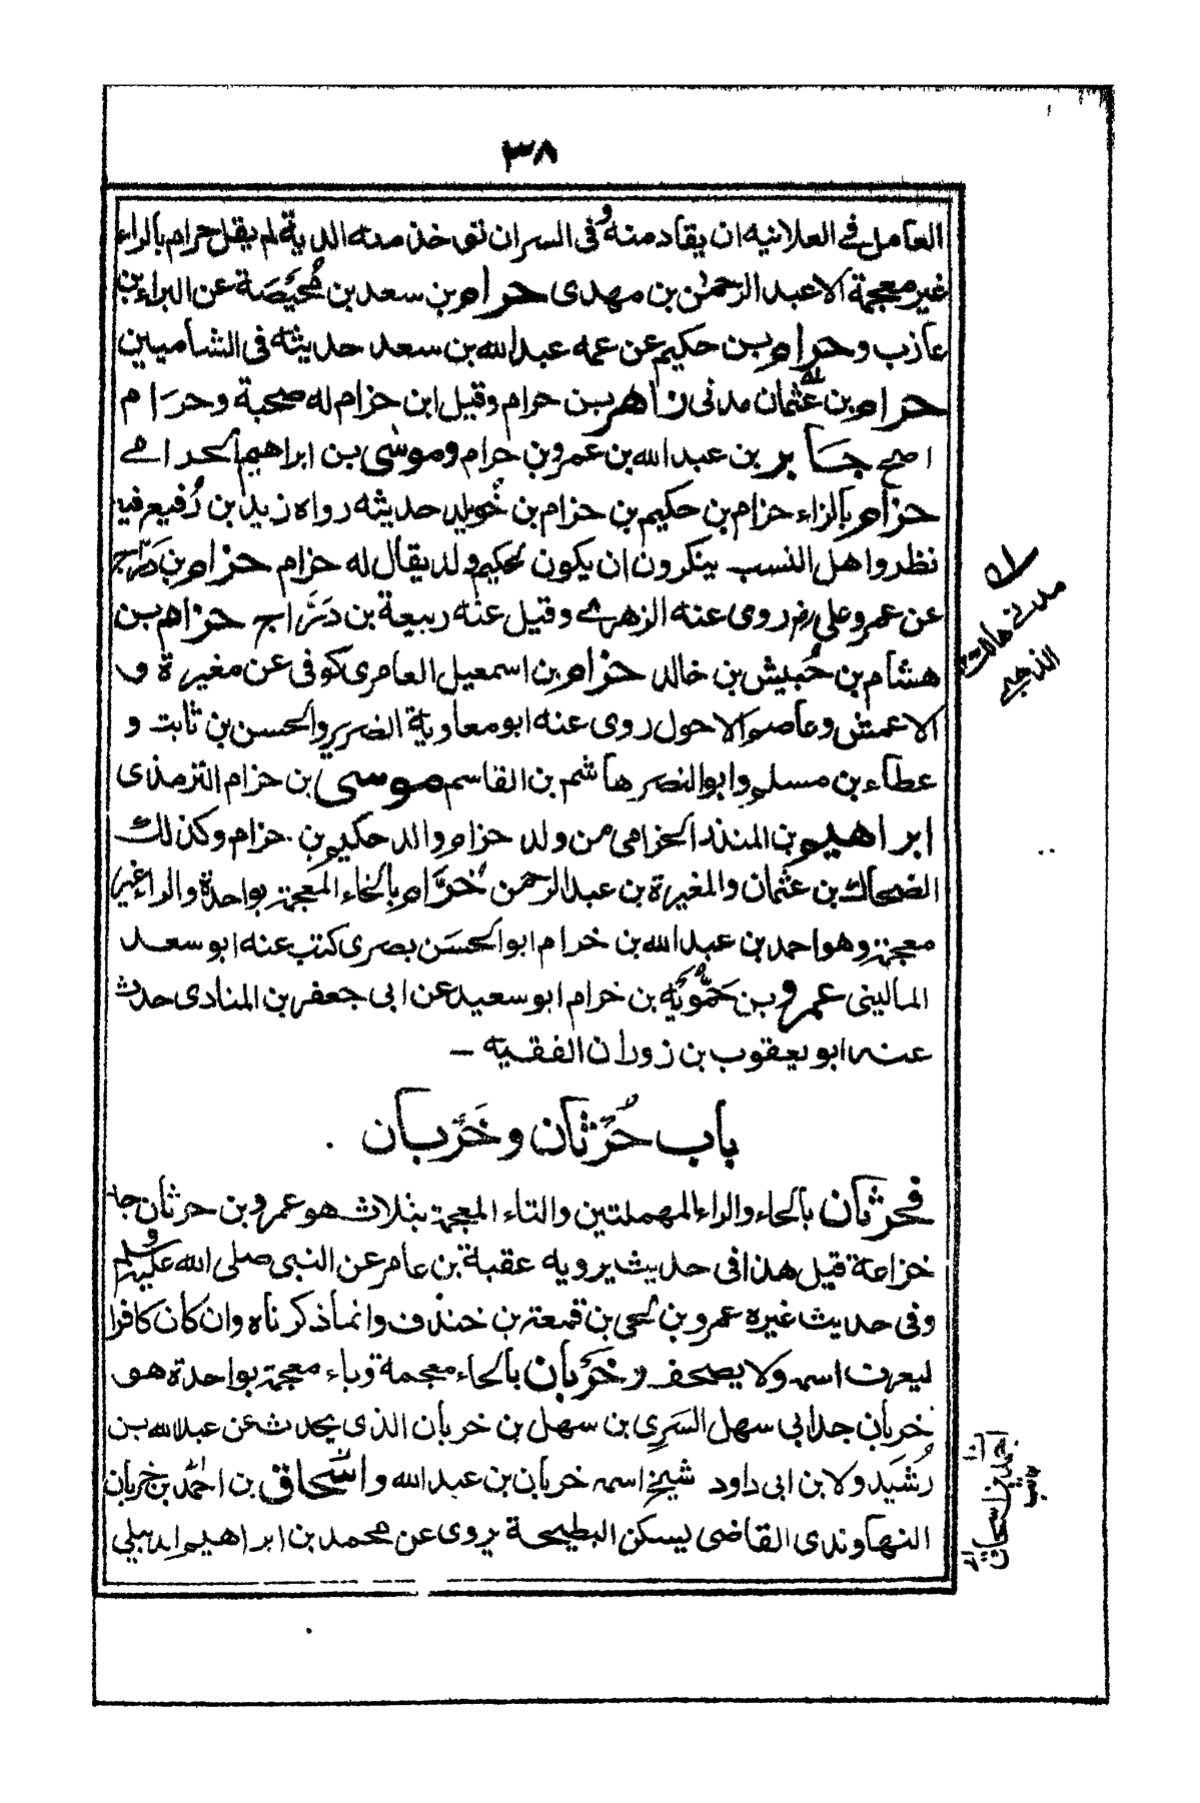 ٣٨
العامل في العلانيه ان يقاد منه وفى السران توخذ منه الدية لم يقل حرام بالراء
غير معجمة الا عبد الرحمن بن مهدى حرام بن سعد بن مُحَيَّصَة عن البراء بن
عازب وحرام بن حكيم عن عمه عبد الله بن سعد حديثه فى الشاميين
حرام بن عثمان مدنى زاهر بن حرام وقيل ابن حزام له صحبة وحرَام
اصح جابر بن عبد الله بن عمرو بن حرام وموسى بن ابراهيم الحرامي
حزام بالزاء حزام بن حكيم بن حزام بن خُويلد حديثه رواه زيد بن رُفيع فيه
نظر واهل النسب ينكرون ان يكون لحكيم ولد يقال له حزام حزام بن دَرّاج
عن عمر وعلي رض روى عنه الزهري وقيل عنه ربيعة بن دَرَّاج حزام بن
هشام بن حُبيش بن خالد حزام بن اسمعيل العامرى كوفى عن مغيرة و
الاعمش وعاصم الاحول روى عنه ابو معاوية الضرير والحسن بن ثابت و
عطاء بن مسلم وابو النصر هاشم بن القاسم موسى بن حزام الترمذى
ابراهيم بن المنذر الحزامى من ولد حزام والد حكيم بن حزام وكذلك
الضحاك بن عثمان والمغيرة بن عبد الرحمن خُرَّام بالخاء المعجمة بواحدة والراء غير
معجمة وهو احمد بن عبد الله بن خرام ابو الحسَن بصرى كتب عنه ابو سعد
المالينى عمرو بن حَمُّويَه بن خرام ابو سعيد عن ابى جعفر بن المنادى حدث
عنه ابو يعقوب بن زوران الفقيه –
باب حُرْثان وخَرْبان
فحرثان بالحاء والراء المهملتين والثاء المعجمة بثلاث هو عمرو بن حرثان جد
خزاعة قيل هذا فى حديث يرويه عقبة بن عامر عن النبى صلى الله عليه وسلم
وفى حديث غيره عمرو بن لحى بن قمعة بن خندف وانما ذكرناه وان كان كافرا
ليعرف اسمه ولا يصحف وخَرْبان بالخاء معجمة وباء معجمة بواحدة هو
خربان جد ابي سهل السَري بن سهل بن خربان الذى يحدث عن عبد الله بن
رُشَيد ولابن ابى داود شيخ اسمه خربان بن عبد الله واسحاق بن احمد بن خربان
النهاوندى القاضى يسكن البطيحة يروى عن محمد بن ابراهيم الدبيلي
مدنى هالك
الذهبي
احمد بن اسحاق